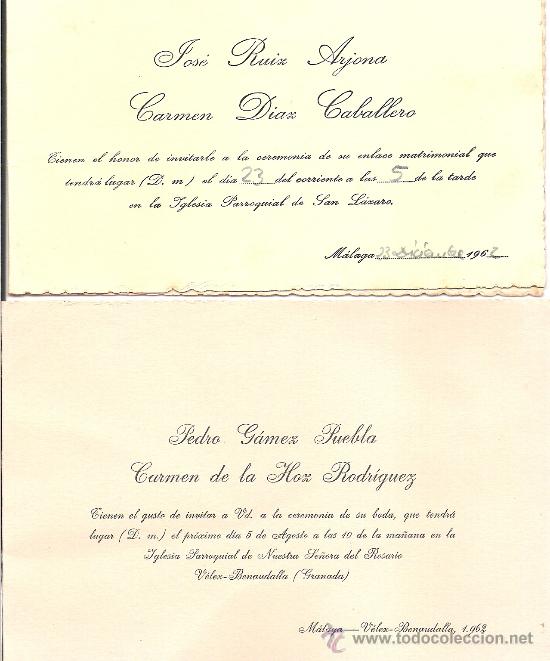 José Ruiz Arjona
Carmen Diaz Caballero
Tienen el honor de invitarle a la ceremonia de su enlace matrimonial que
tendrá lugar (D. m) el día 23 del corriente a las 5 de la tarde
en la Iglesia Parroquial de San Lázaro.
Málaga 23 diciembre 1962
Pedro Gámez Puebla
Carmen de la Hoz Rodríguez
Tienen el gusto de invitar a Vd. a la ceremonia de su boda, que tendrá
lugar (D. m.) el próximo día 5 de Agosto a las 10 de la mañana en la
Iglesia Parroquial de Nuestra Señora del Rosario
Vélez-Benaudalla (Granada)
Málaga — Vélez-Benaudalla, 1.962
www.todocoleccion.net